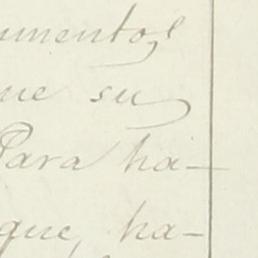 umentos
ue su
Para ha-
que, ha-